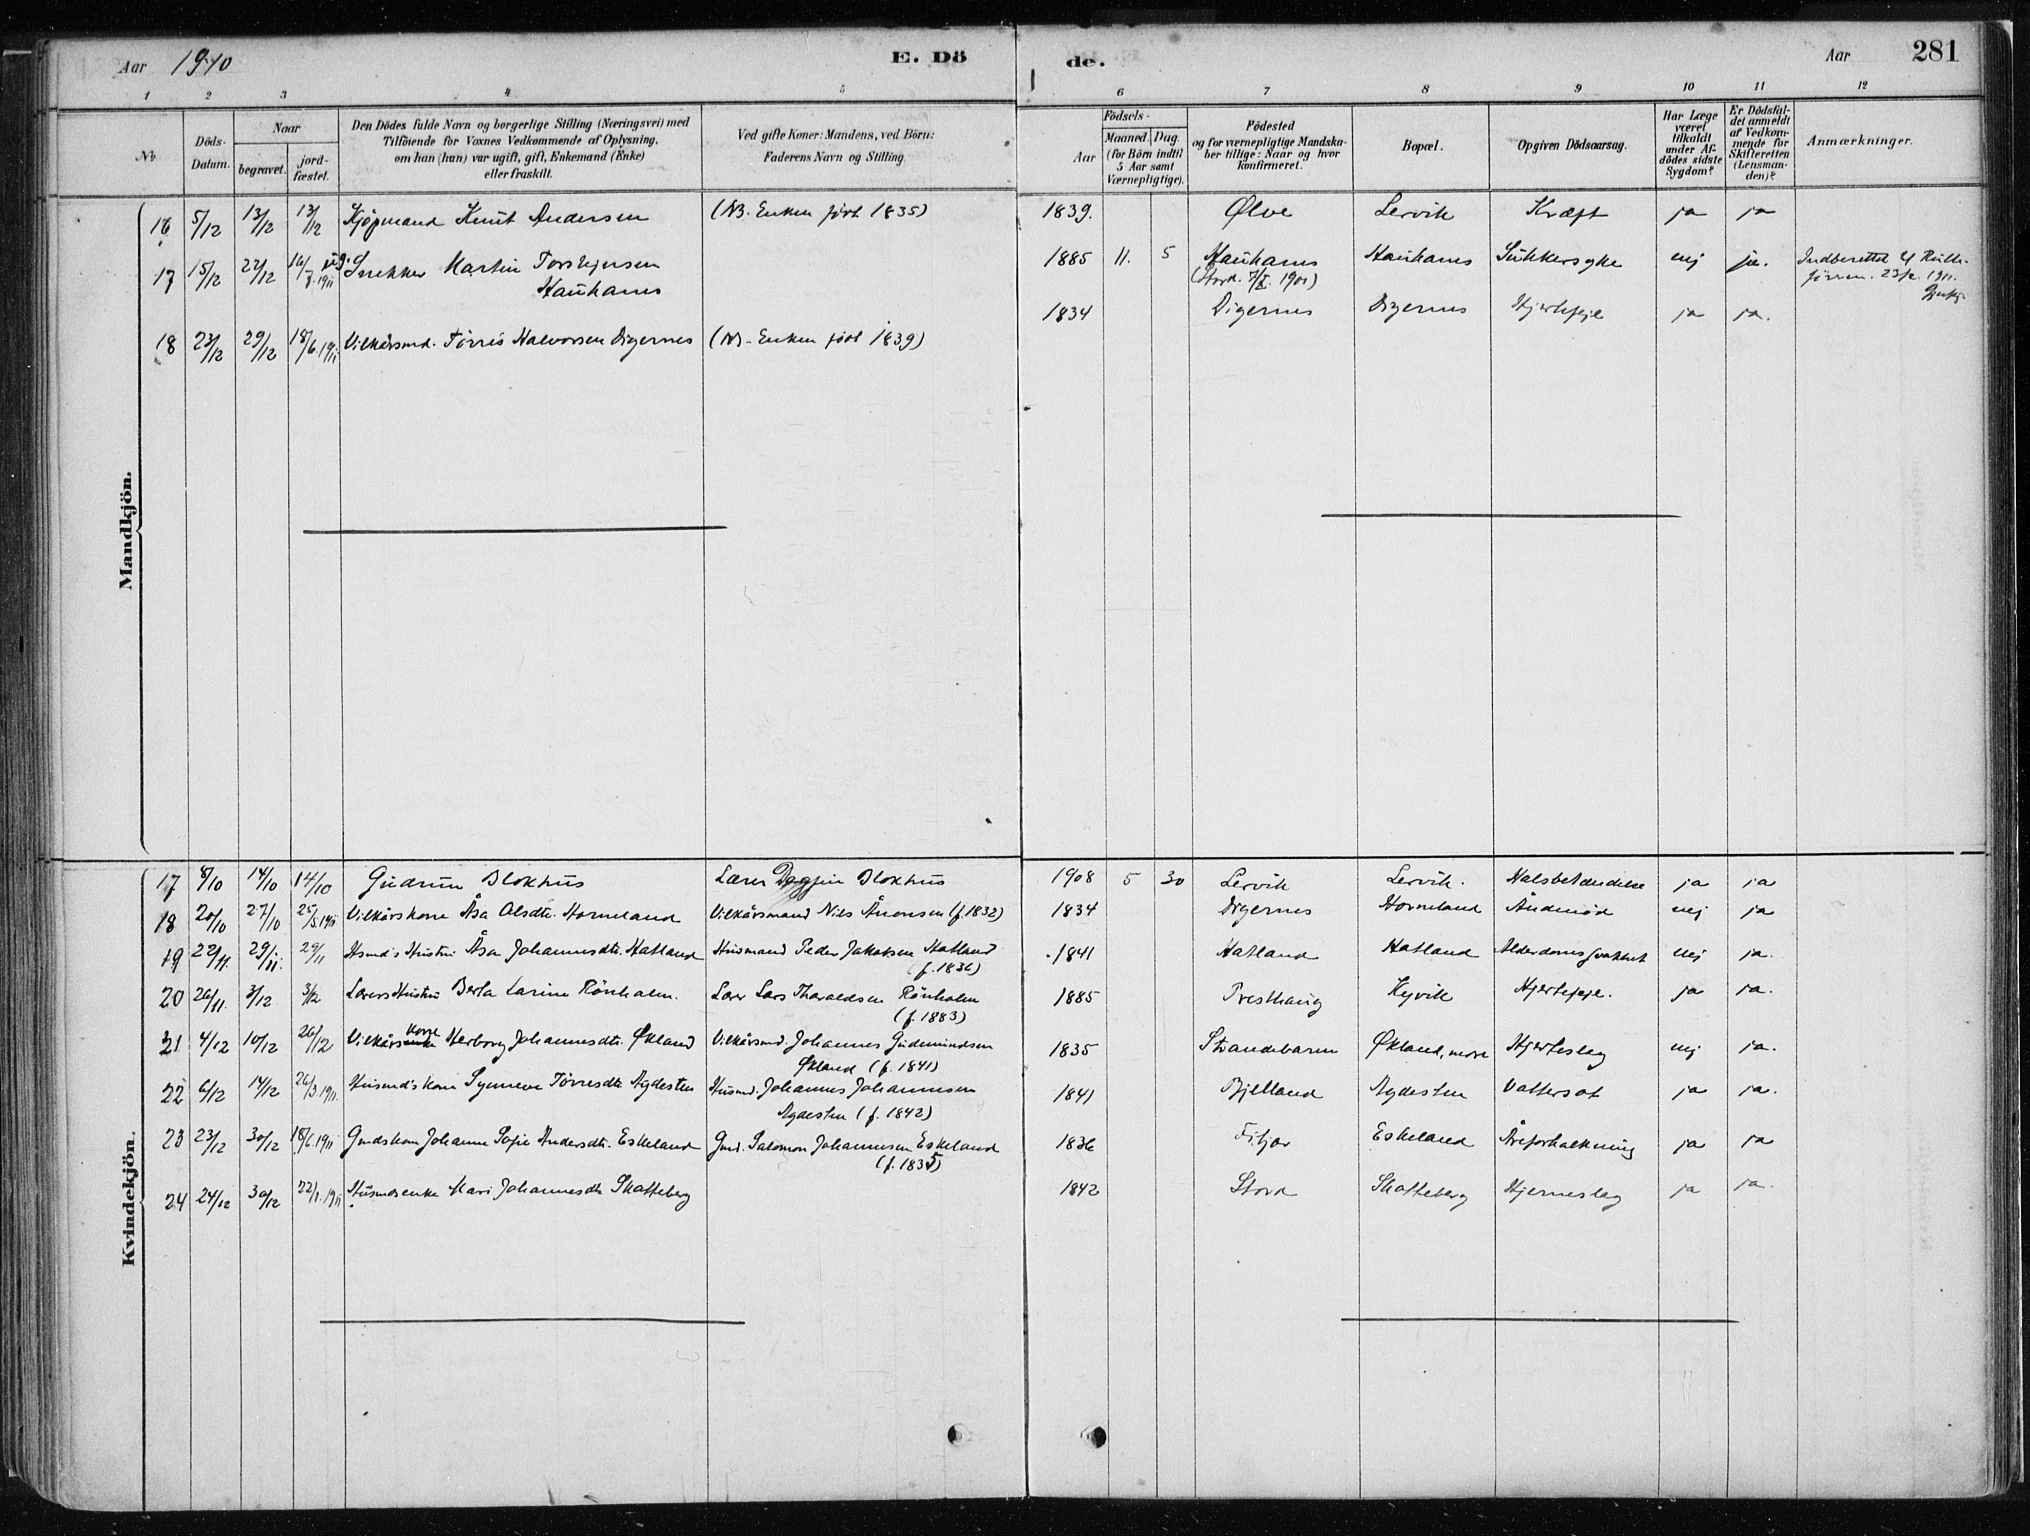 Aar 1910 E. Dö de. Aar 281
1 2 3 4 5 6 7 8 9 10 11 12
No
Döds-Datum.
Naar
begravet.
jord-fæstet.
Den Dödes fulde Navn og borgerlige Stilling (Næringsvei) med
Tilföiende for Voxnes Vedkommende af Oplysning,
om han (hun) var ugift, gift, Enkemand (Enke)
eller fraskilt.
Ved gifte Koner: Mandens, ved Börn:
Faderens Navn og Stilling.
Födsels-
Aar
Maaned. Dag.
(for Börn indtil
5 Aar samt
Værnepligtige).
Födested
og for værnepligtige Mandska-
ber tillige: Naar og hvor
konfirmeret.
Bopæl.
Opgiven Dödsaarsag.
Har Læge
været
tilkaldt
under Af-
dödes sidste
Sygdom?
Er Dödsfal-
det anmeldt
af Vedkom-
mende for
Skifteretten
(Lensman-
den)?
Anmærkninger.
Mandkjön.
16 5/12 13/12 13/12 Kjøpmand Knut Andersen (NB. Enken født 1835) 1839. Ølve Lervik Kræft ja ja
17 15/12 22/12 ug. Snekker Martin Torstejnsen 1885 11. 5 Hauhams Hauhams Sukkersyke nej ja. Indberettet
Hauhams (Stord 1901) 1911.
18 23/12 29/12 18/6.1911 Vilkårsmd. Tørris Halvorsen Digernes (NB - Enken født 1839) 1834 Digernes Digernes Hjertefeje ja ja.
Kvindekjön.
17 8/10 14/10 14/10 Gudrun Blokhus Lærer Dagfin Blokhus 1908 5 30 Lervik Lervik. Halsbetændelse ja ja
18 20/10 27/10 25/5.1911 Vilkårskone Åsa Olsdtr. Horneland Vilkårsmand Nils Ånonsen (f. 1832) 1834 Digernes Horneland Åndenød nej ja
19 22/11. 29/11. 29/11 Hsmd's Hustru Åsa Johannesdtr. Hatland Husmand Peder Jakobsen Hatland 1841 Hatland Hatland Alderdomssvakhet nej ja.
(f. 1836)
20 26/11. 3/12 3/12 Lærers Hustru Berta Larine Rönholm. Lærer Lars Tharaldsen Rönholm 1885 Presthaug Hejvik Hjertefeje. ja ja.
(f. 1883)
21 4/12 10/12 26/12 Vilkårskone Herborg Johannesdtr. Økland Vilkårsmd. Johannes Gudmundsen 1835 Strandebarm Økland, nedre Hjerteslag nej ja.
Økland (f. 1841)
22 6/12 14/12 26/3.1911. Husmd's kone Synneva Tørresdtr. Agdesten Husmd. Johannes Johannesen 1841 Bjelland Agdesten Vattersot ja ja.
Agdesten (f. 1842)
23 23/12 30/12 18/6.1911 Gmdskone Johanne Sofie Andersdtr. Eskeland Gmd. Salomon Johannesen Eskeland 1836 Fitjar Eskeland Åreforkalkning ja ja
(f. 1835)
24 24/12 30/12 22/1.1911 Husmdsenke Mari Johannesdtr Skatteberg 1842 Stord Skatteberg Hjerneslag ja ja.